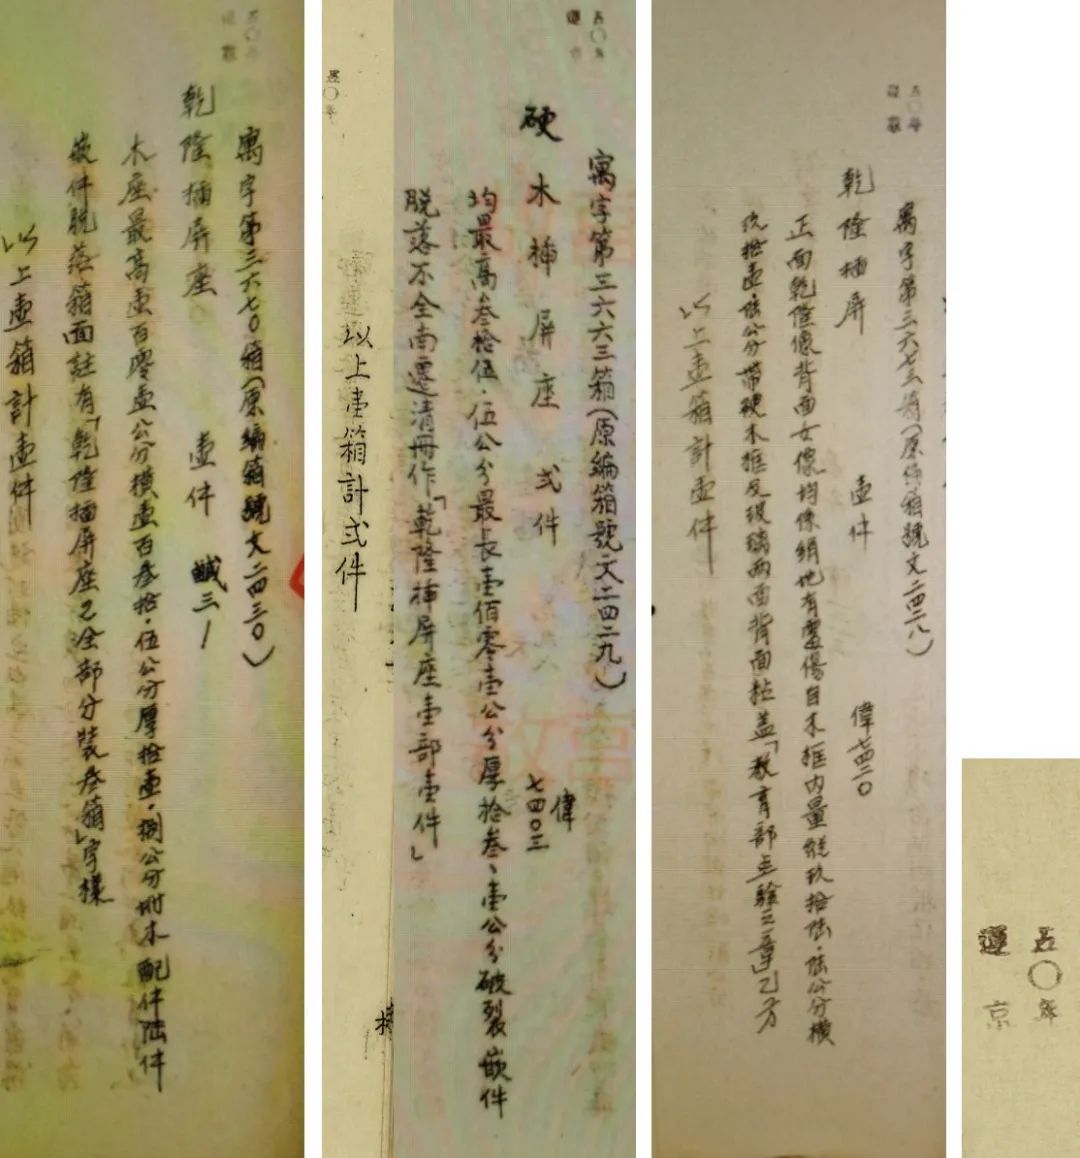 五〇年
運
寓字第三六七〇箱(原編箱號文二四三〇)
乾隆插屏座 壹件 鹹三1
木座最高壹百零壹公分橫壹百叁拾.伍公分厚拾壹.捌公分附木配件陸件
嵌件脫落箱面註有「乾隆插屏座乙全部分裝叁箱」字樣
以上壹箱計壹件
五〇年
寓字第三六六三箱(原編箱號文二四二九)
硬木插屏座 弍件 偉七四〇三
均最高叁拾伍.伍公分最長壹佰零壹公分厚拾叁、壹公分破裂嵌件
脫落不全南遷清冊作「乾隆插屏座壹部壹件」
以上壹箱計弍件
五〇年
寓字第三六七三箱(原編箱號文二四二八)
乾隆插屏 壹件 偉七四二〇
正面乾隆像背面女像均係絹地有蟲傷自木框內量縱玖拾陸.陸公分橫
玖拾壹.陸公分帶硬木框及玻璃兩面背面粘蓋「教育部點驗之章」乙方
以上壹箱計壹件
五〇年
運京